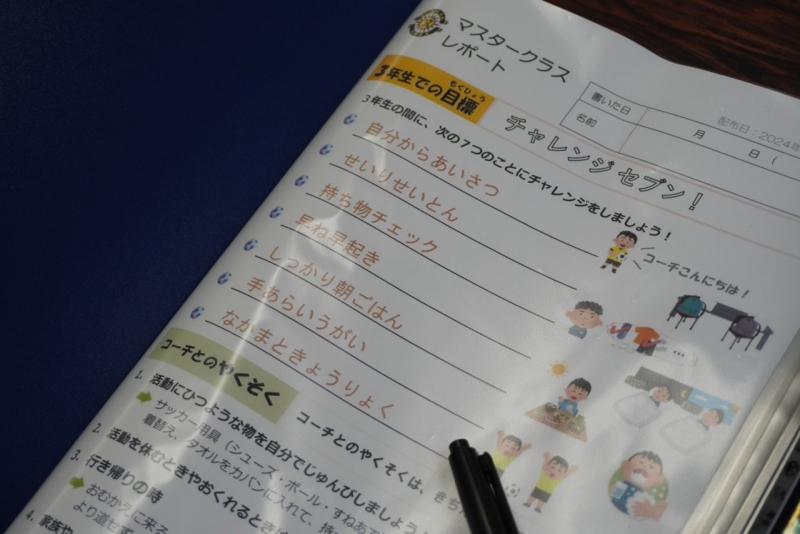 マスタークラス
レポート
配布日：2024年
書いた日
月
日（
名前
もくひょう
3年生での目標
チャレンジセブン！
3年生の間に、次の7つのことにチャレンジをしましょう！
自分からあいさつ
せいりせいとん
持ち物チェック
早ね早起き
しっかり朝ごはん
手あらいうがい
なかまときょうりょく
コーチこんにちは！
コーチとのやくそく
コーチとのやくそくは、きち
1. 活動にひつような物を自分でじゅんびしましょう！
サッカー用具（シューズ・ボール・すねあて
着替え、タオルをカバンに入れて、持
2. 活動を休むときやおくれるときは
3. 行き帰りの時
おむかえに来る
より道せず
4. 家族や